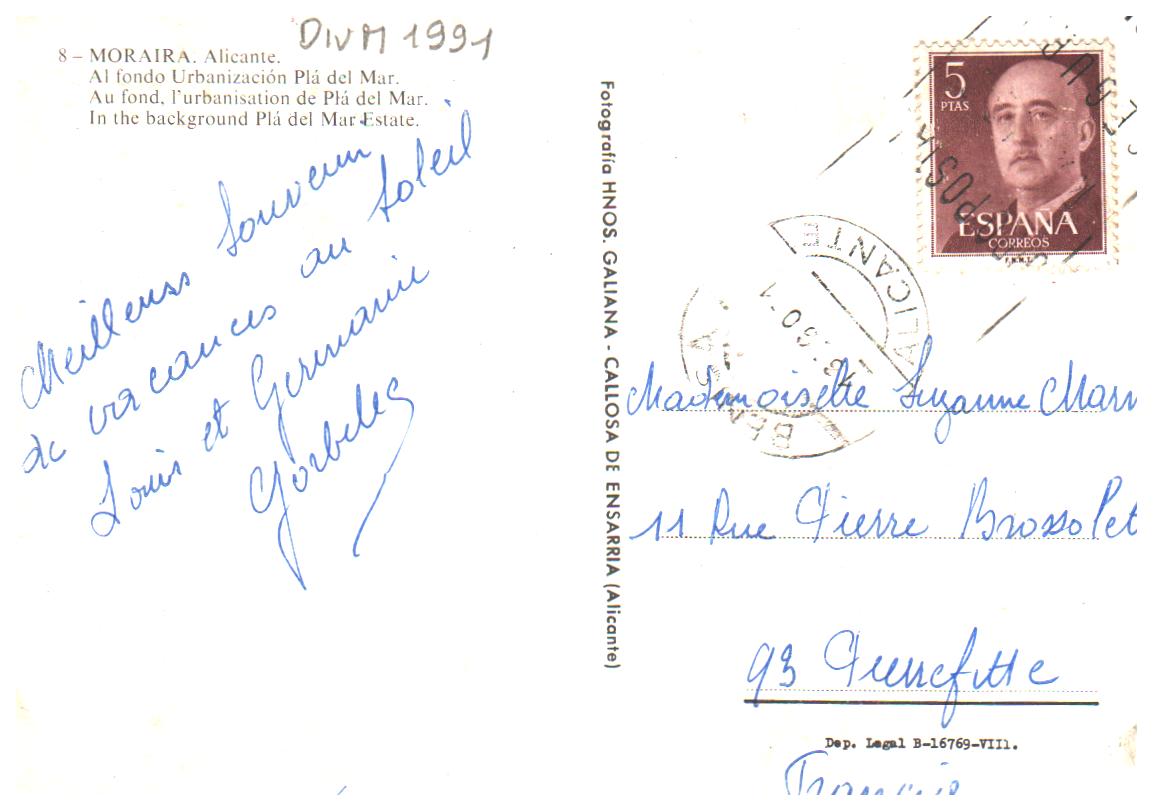 DIVM 1991
8 – MORAIRA. Alicante.
Al fondo Urbanización Plá del Mar.
Au fond, l'urbanisation de Plá del Mar.
In the background Plá del Mar Estate.
Meilleurs Souvenir
de vacances au Soleil
Louis et Germaine
Fotografía HNOS. GALIANA - CALLOSA DE ENSARRIA (Alicante)
5
PTAS
ESPAÑA
CORREOS
F.N.M.T.
POSTA
ALICANTE
BENISA
Mademoiselle Suzanne Marn
11 Rue Pierre Brossolet
93 Pierrefitte
Dep. Legal B-16769-VIII.